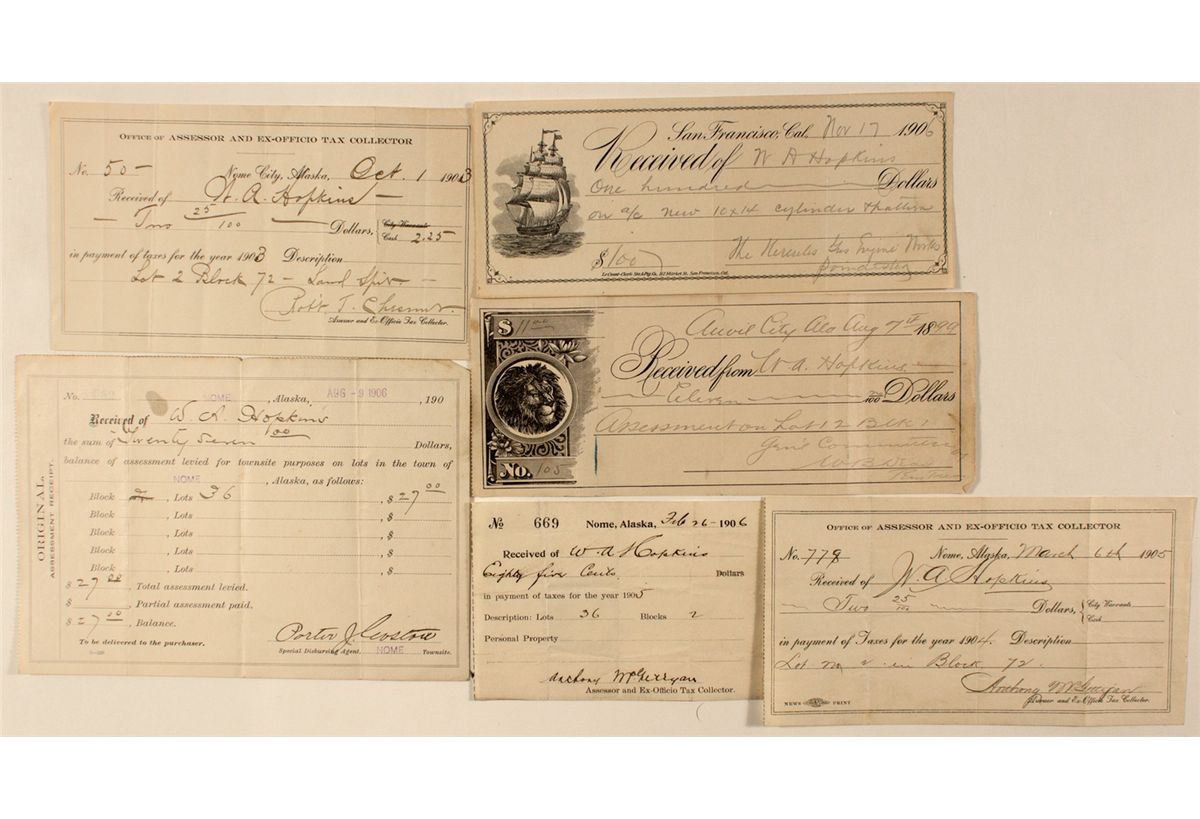 OFFICE OF ASSESSOR AND EX-OFFICIO TAX COLLECTOR
No. 50 —
Nome City, Alaska, Oct. 1 1903
Received of W. A. Hopkins —
— Two 25/100 — Dollars, City Warrants
Cash 2.25
in payment of taxes for the year 1903 Description
Lot 2 Block 72 — Sand Spit —
Robt. T. Chesnut.
Assessor and Ex-Officio Tax Collector.
San Francisco, Cal. Nov 17 1906
Received of W A Hopkins
One hundred Dollars
on a/c new 10x14 cylinder & pattern
$100 The Hercules Gas Engine Works
Le Count-Clark Sta & Ptg Co., Market St. San Francisco, Cal.
No.
NOME, Alaska, AUG - 9 1906, 190
Received of W. A. Hopkins
the sum of Twenty Seven 00 Dollars,
balance of assessment levied for townsite purposes on lots in the town of
NOME, Alaska, as follows:
Block , Lots 36 , $ 27 00
Block , Lots , $
Block , Lots , $
Block , Lots , $
Block , Lots , $
$ 27 00, Total assessment levied.
$ Partial assessment paid.
$ 27 00, Balance.
To be delivered to the purchaser.
Porter J. Coston
Special Disbursing Agent. NOME Townsite.
ORIGINAL.
ASSESSMENT RECEIPT.
$ 11 00
Anvil City Ala Aug 7th 1899
Received from W. A. Hopkins
Eleven 100 Dollars
Assessment on Lot 12 Blk 1
No. 105
No 669 Nome, Alaska, Feb 26 - 1906
Received of W A Hopkins
Eighty five Cents. Dollars
in payment of taxes for the year 1905
Description: Lots 36 Blocks 2
Personal Property
Anthony McGettigan
Assessor and Ex-Officio Tax Collector.
OFFICE OF ASSESSOR AND EX-OFFICIO TAX COLLECTOR
No. 779 Nome, Alaska, March 6th 1905
Received of W. A. Hopkins
— Two 25/100 — Dollars, City Warrants
Cash
in payment of Taxes for the year 1904. Description
Lot no 2 in Block 72.
Anthony McGettigan
Assessor and Ex-Officio Tax Collector.
NEWS PRINT